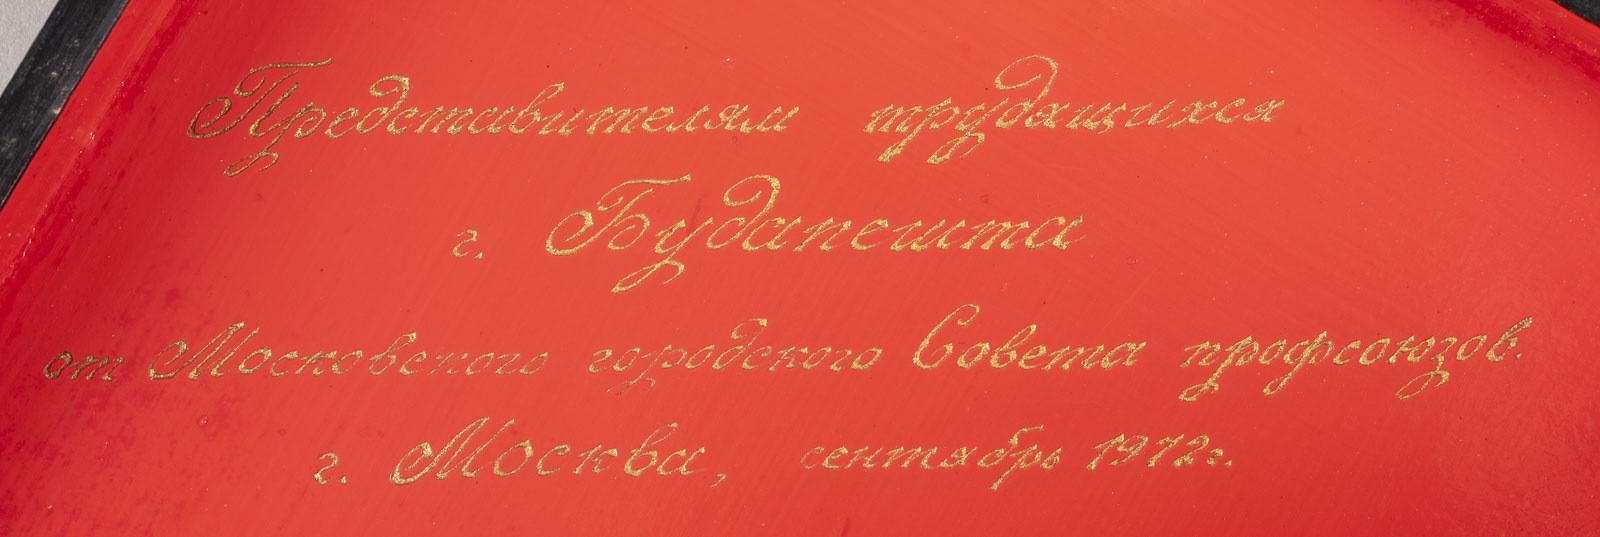 Представителям трудящихся
г. Будапешта
от Московского городского Совета профсоюзов.
г. Москва, сентябрь 1972г.